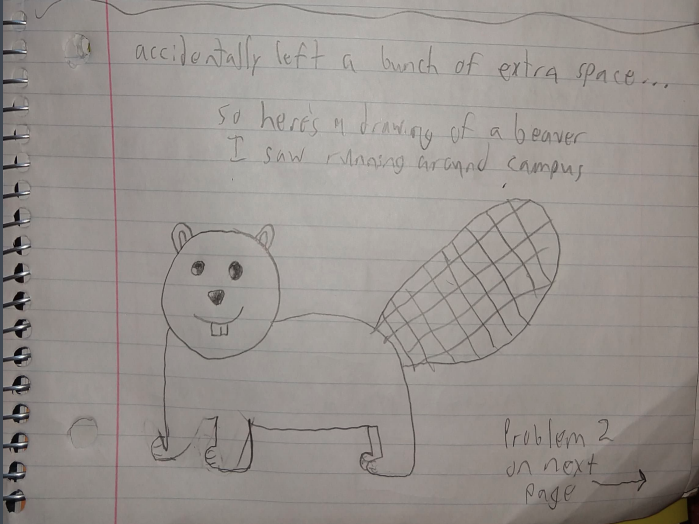 accidentally left a bunch of extra space...
so here's a drawing of a beaver
I saw running around campus
Problem 2
on next
page